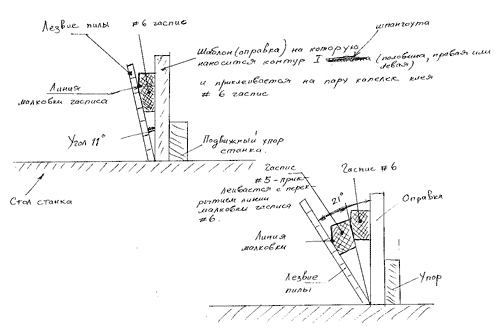 Лезвие пилы
#6 гаспис
шпангоута
Шаблон (оправка) на которую
наносится контур I
(половина, правая или
левая),
и приклеивается на пару капелек клея
#6 гаспис
Линия
малковки гасписа
Угол 11°
Подвижный упор
станка.
Стол станка
Гаспис
#5 - прик-
леивается с перек-
рытием линии
малковки гасписа
#6.
21°
Гаспис #6
Оправка
Линия
малковки
Лезвие
пилы
Упор